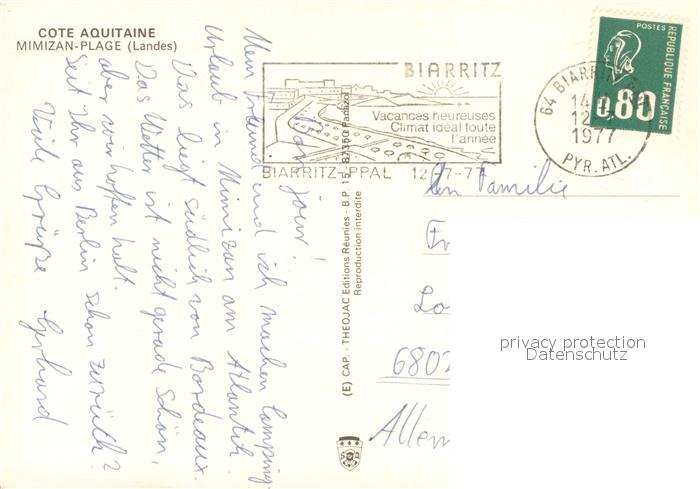 COTE AQUITAINE
MIMIZAN-PLAGE (Landes)
Bon jour!
Mein Freund und ich machen Camping-
Urlaub in Mimizan am Atlantik.
Das liegt südlich von Bordeaux.
Das Wetter ist nicht gerade schön,
aber wir hoffen halt.
Seit Ihr aus Berlin schon zurück?
Viele Grüße Gerhard
(E) CAP. - THEOJAC Editions Réunies - B.P. 15 - 87350 Panazol
Reproduction interdite
BIARRITZ
Vacances heureuses
Climat idéal toute
l'année
BIARRITZ-PPAL 12-7-77
64 BIARRITZ
14
12-7
1977
PYR. ATL.
POSTES
REPUBLIQUE FRANÇAISE
0,80
An Familie
Fr
Lo
6802
Allem
privacy protection
Datenschutz